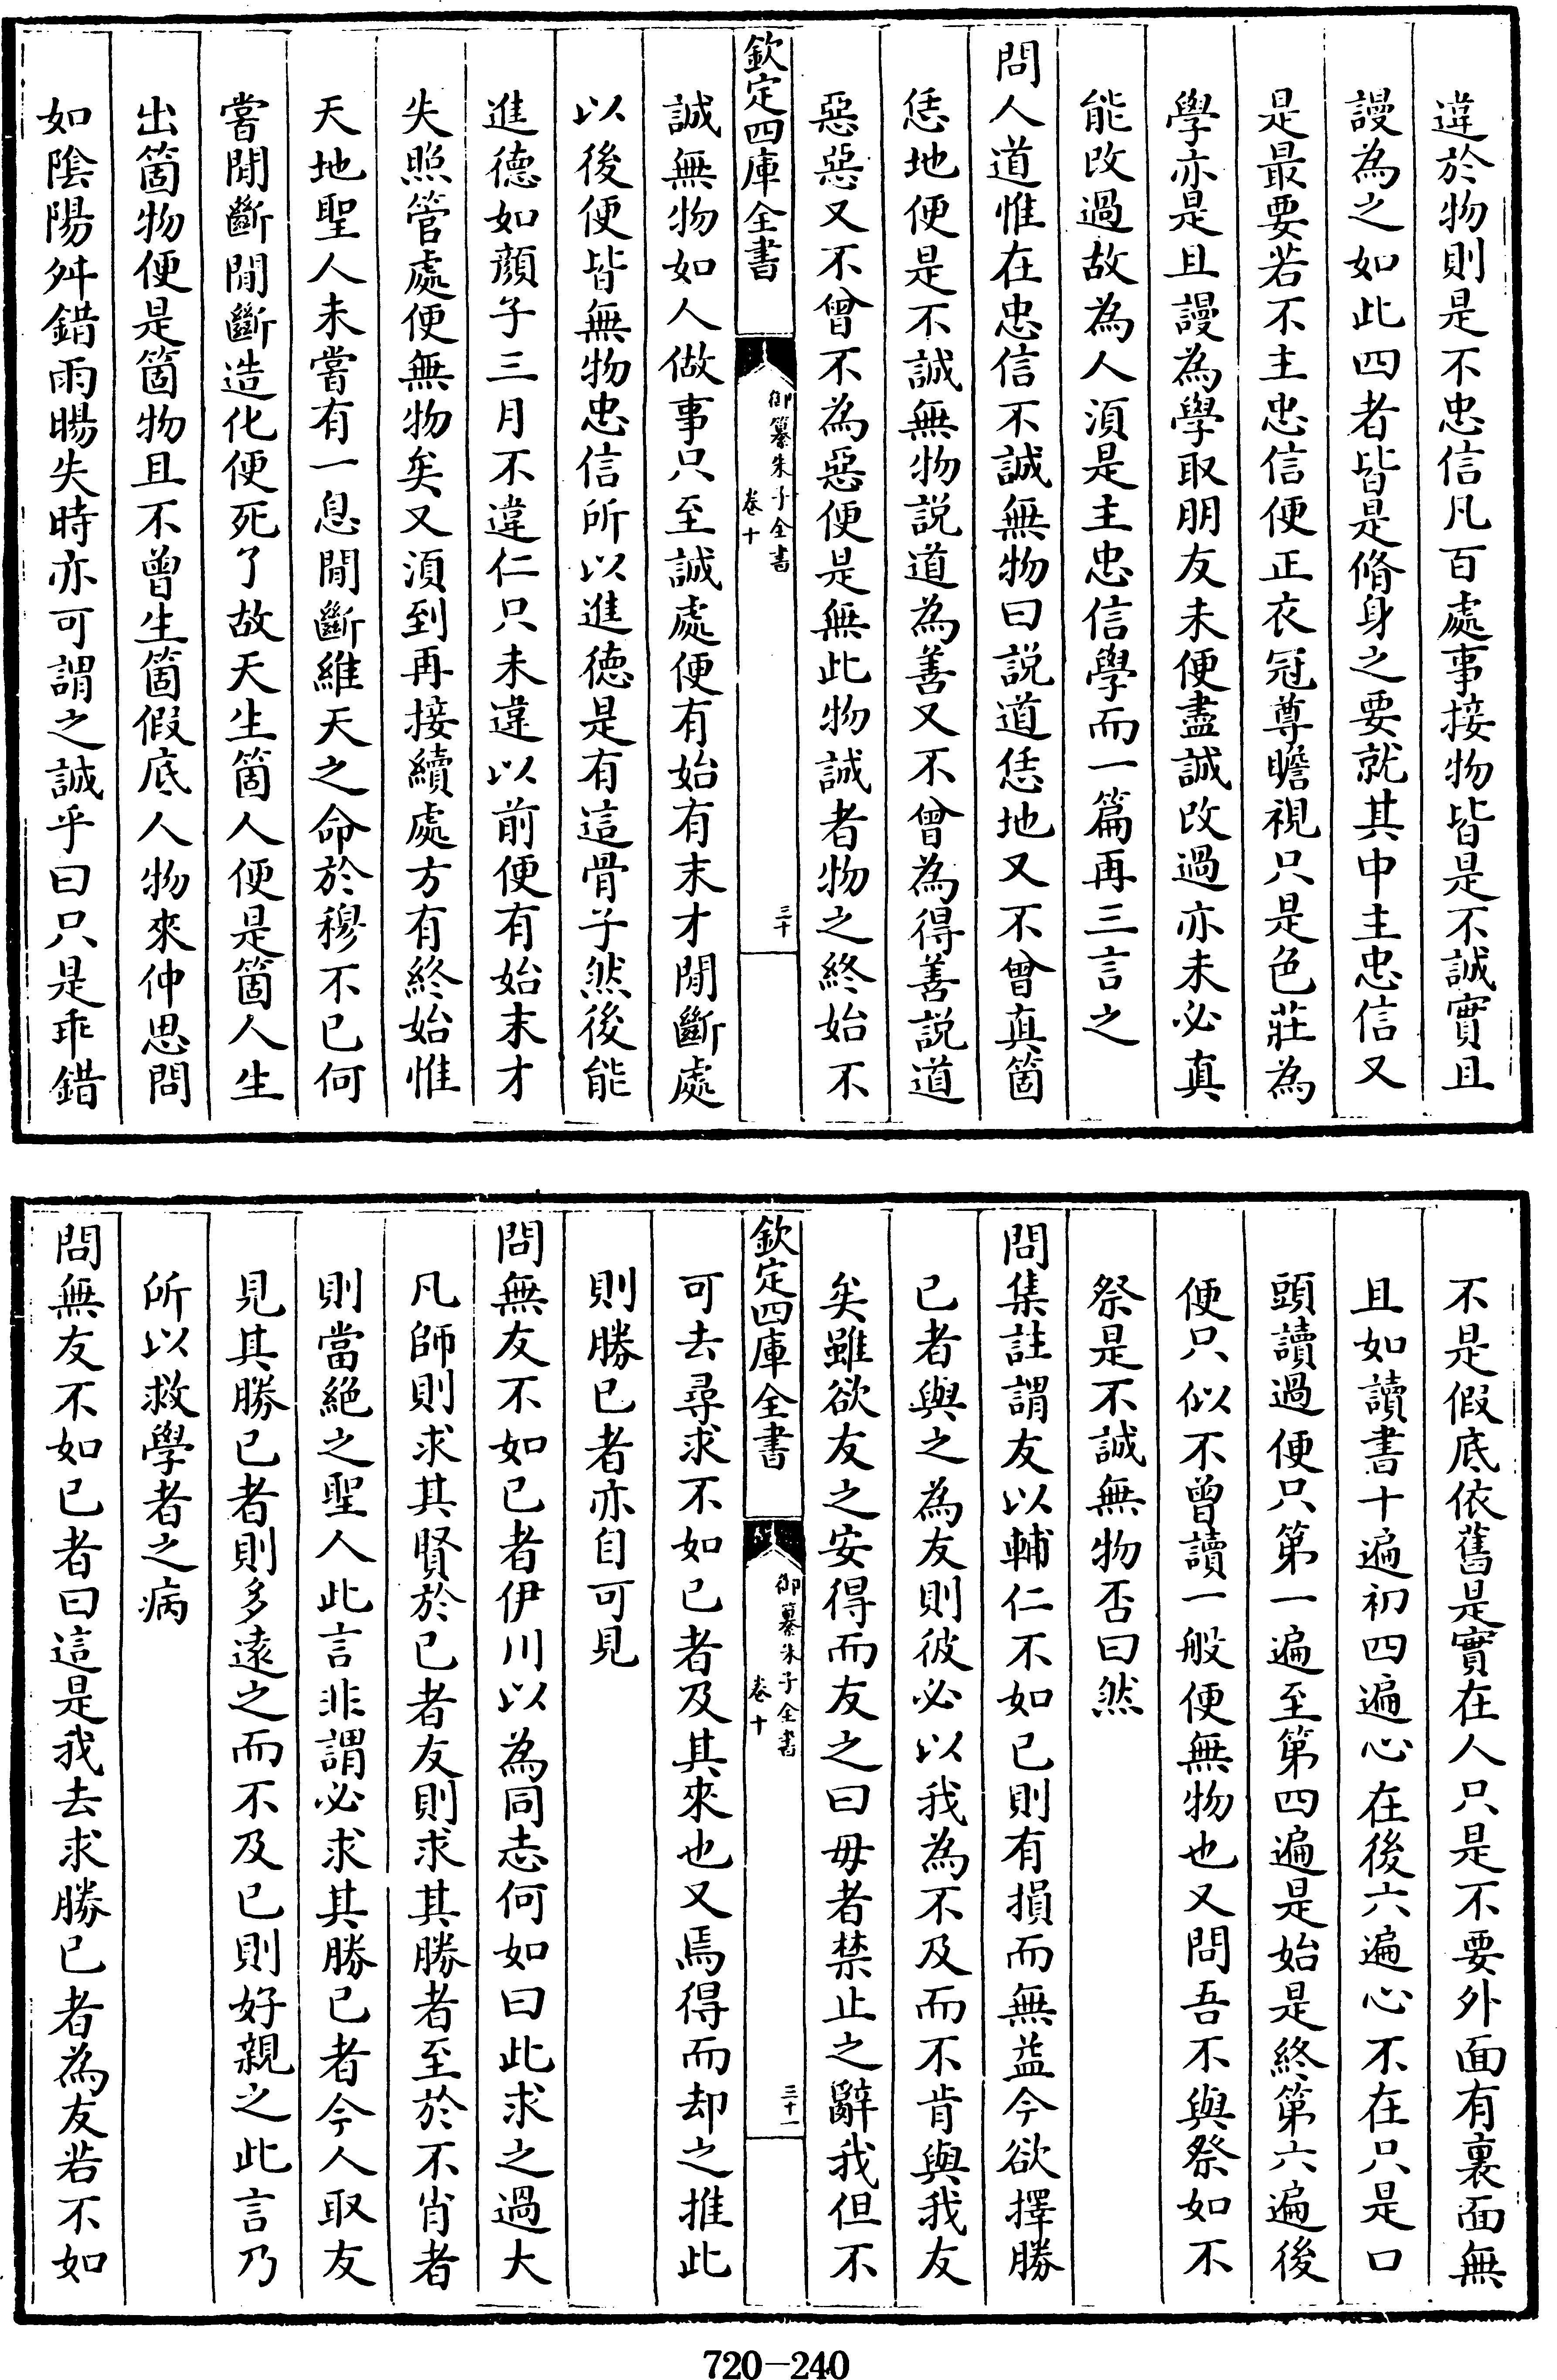 違於物則是不忠信凡百處事接物皆是不誠實且
謾為之如此四者皆是脩身之要就其中主忠信又
是最要若不主忠信便正衣冠尊瞻視只是色莊為
學亦是且謾為學取朋友未便盡誠改過亦未必真
能改過故為人須是主忠信學而一篇再三言之
問人道惟在忠信不誠無物曰説道恁地又不曾真箇
恁地便是不誠無物説道為善又不曾為得善説道
惡惡又不曾不為惡便是無此物誠者物之終始不
欽定四庫全書
御纂朱子全書
卷十
三十
誠無物如人做事只至誠處便有始有末才閒斷處
以後便皆無物忠信所以進德是有這骨子然後能
進德如顔子三月不違仁只未違以前便有始末才
失照管處便無物矣又須到再接續處方有終始惟
天地聖人未嘗有一息閒斷維天之命於穆不已何
嘗閒斷閒斷造化便死了故天生箇人便是箇人生
出箇物便是箇物且不曾生箇假底人物來仲思問
如陰陽舛錯雨暘失時亦可謂之誠乎曰只是乖錯
不是假底依舊是實在人只是不要外面有裏面無
且如讀書十遍初四遍心在後六遍心不在只是口
頭讀過便只第一遍至第四遍是始是終第六遍後
便只似不曾讀一般便無物也又問吾不與祭如不
祭是不誠無物否曰然
問集註謂友以輔仁不如已則有損而無益今欲擇勝
已者與之為友則彼必以我為不及而不肯與我友
矣雖欲友之安得而友之曰毋者禁止之辭我但不
欽定四庫全書
御纂朱子全書
卷十
三十一
可去尋求不如已者及其來也又焉得而却之推此
則勝已者亦自可見
問無友不如已者伊川以為同志何如曰此求之過大
凡師則求其賢於已者友則求其勝者至於不肖者
則當絶之聖人此言非謂必求其勝已者今人取友
見其勝已者則多遠之而不及已則好親之此言乃
所以救學者之病
問無友不如已者曰這是我去求勝已者為友若不如
720-240